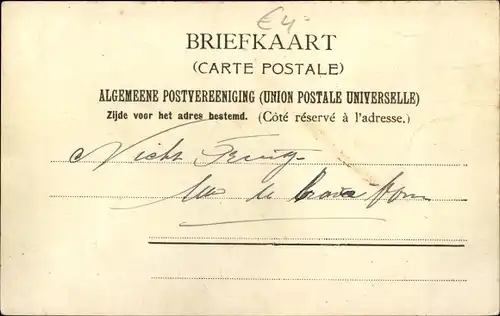 €4-
BRIEFKAART
(CARTE POSTALE)
ALGEMEENE POSTVEREENIGING (UNION POSTALE UNIVERSELLE)
Zijde voor het adres bestemd. (Côté réservé à l'adresse.)